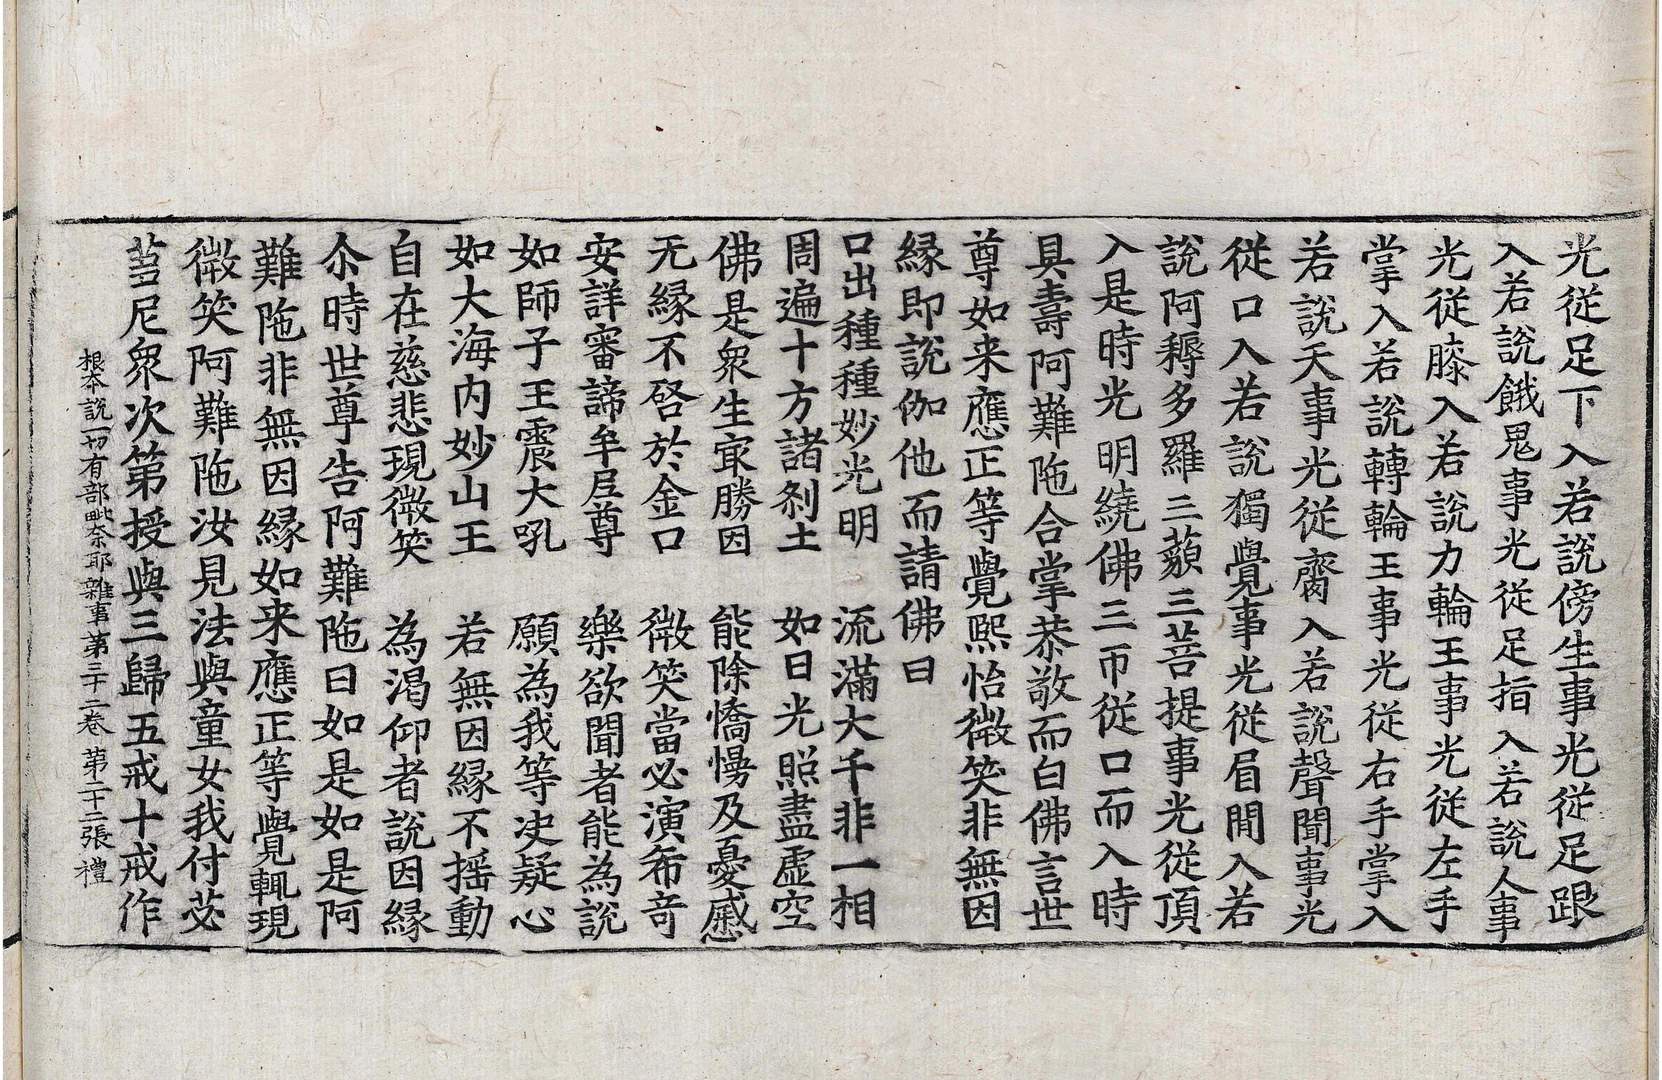 光従足下入若說傍生事光従足跟
入若說餓鬼事光従足指入若說人事
光従膝入若說力輪王事光従左手
掌入若說轉輪王事光従右手掌入
若說天事光従齎入若說聲聞事光
従口入若說獨覺事光従眉間入若
說阿耨多羅三藐三菩提事光従頂
入是時光明繞佛三帀従口而入時
具壽阿難陁合掌恭敬而白佛言世
尊如来應正等覺熙怡微笑非無因
縁即說伽他而請佛曰
口出種種妙光明　流滿大千非一相
周遍十方諸刹土　如日光照盡虛空
佛是衆生㝡勝因　能除憍慢及憂慼
无縁不啓於金口　微笑當必演希奇
安詳審諦牟尼尊　樂欲聞者能為說
如師子王震大吼　願為我等决疑心
如大海内妙山王　若無因縁不摇動
自在慈悲現微笑　為渴仰者說因縁
尒時世尊告阿難陁曰如是如是阿
難陁非無因縁如来應正等覺輒現
微笑阿難陁汝見法與童女我付苾
芻尼衆次第授與三歸五戒十戒作
根本說一切有部毗奈耶雜事第三十二卷 第二十二張 禮